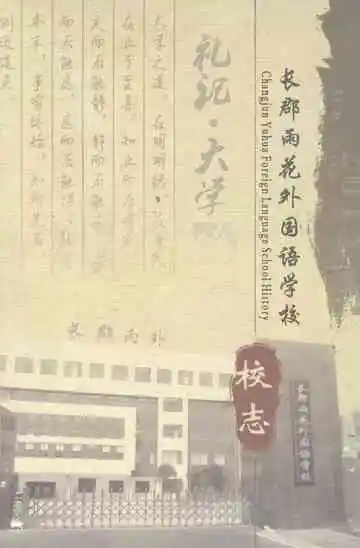 长郡雨花外国语学校
Changjun Yuhua Foreign Language School History
校志
礼记·大学
大学之道，在明明德，
在止于至善。知止而后有
而后能静，静而后能
而后能虑，虑而后能得
本末，事有终始，知所先后，
则近道矣
长郡雨
长郡雨花外国语学校